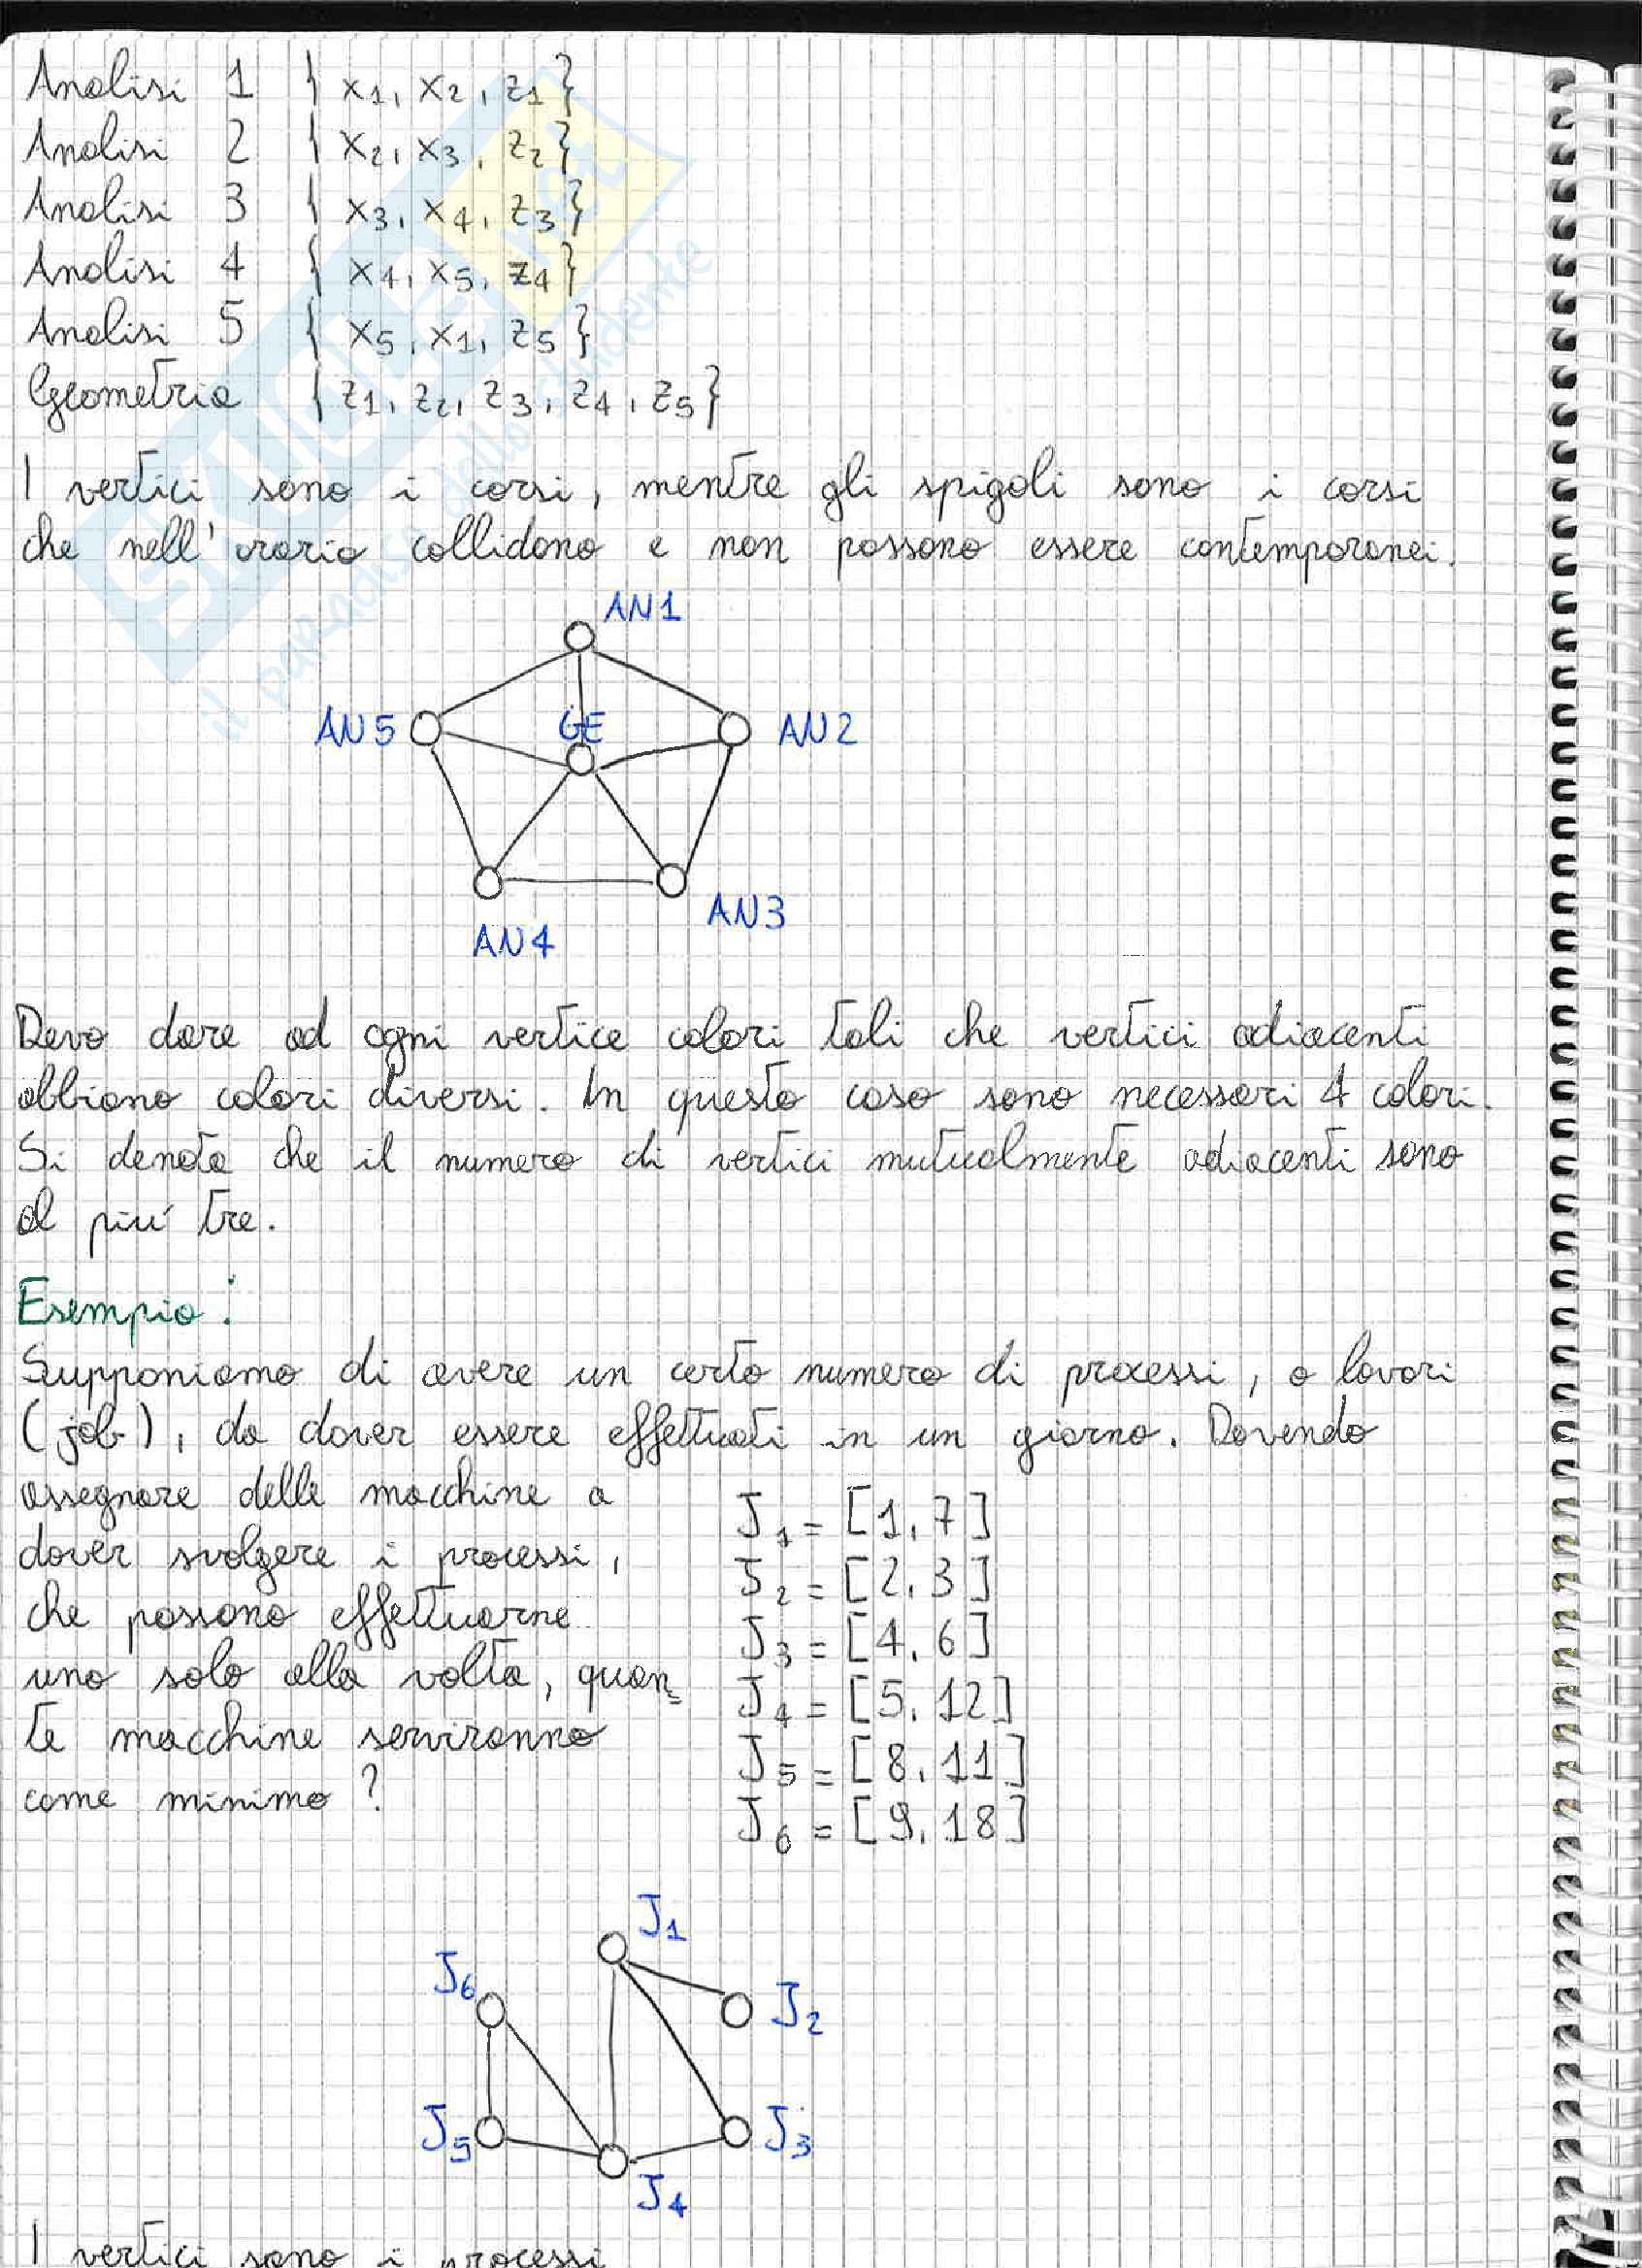 Analisi 1 { x1, x2, z1}
Analisi 2 { x2, x3, z2}
Analisi 3 { x3, x4, z3}
Analisi 4 { x4, x5, z4}
Analisi 5 { x5, x1, z5}
Geometria { z1, z2, z3, z4, z5}
I vertici sono i corsi, mentre gli spigoli sono i corsi
che nell'orario collidono e non possono essere contemporanei.
AN1
AN5 GE AN2
AN3
AN4
Devo dare ad ogni vertice colori tali che vertici adiacenti
abbiano colori diversi. In questo caso sono necessari 4 colori.
Si denota che il numero di vertici mutualmente adiacenti sono
al piú tre.
Esempio:
Supponiamo di avere un certo numero di processi, o lavori
(job), da dover essere effettuati in un giorno. Dovendo
assegnare delle macchine a
dover svolgere i processi,
che possono effettuarne
uno solo alla volta, quan=
te macchine serviranno
come minimo?
J1 = [1, 7]
J2 = [2, 3]
J3 = [4, 6]
J4 = [5, 12]
J5 = [8, 11]
J6 = [9, 18]
J1
J6
J2
J5 J3
J4
I vertici sono i processi
SKUOLA.net
il paradiso dello studente